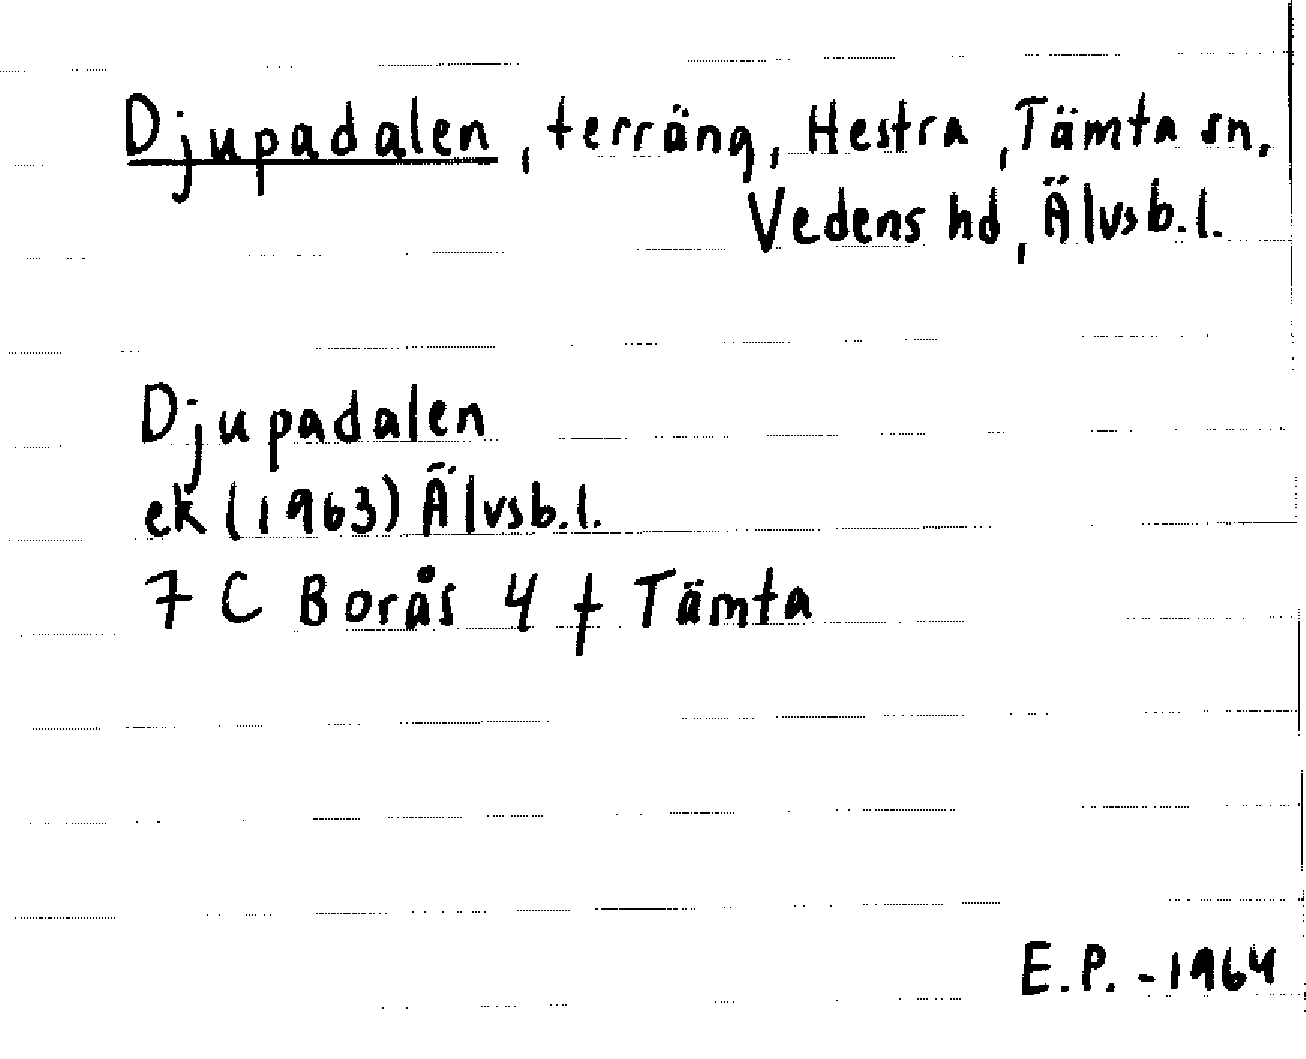 Djupadalen, terräng, Hestra, Tämta sn.
Vedens hd, Älvsb.l.
Djupadalen
ek (1963) Älvsb.l.
7 C Borås 4 f Tämta
E.P. - 1964